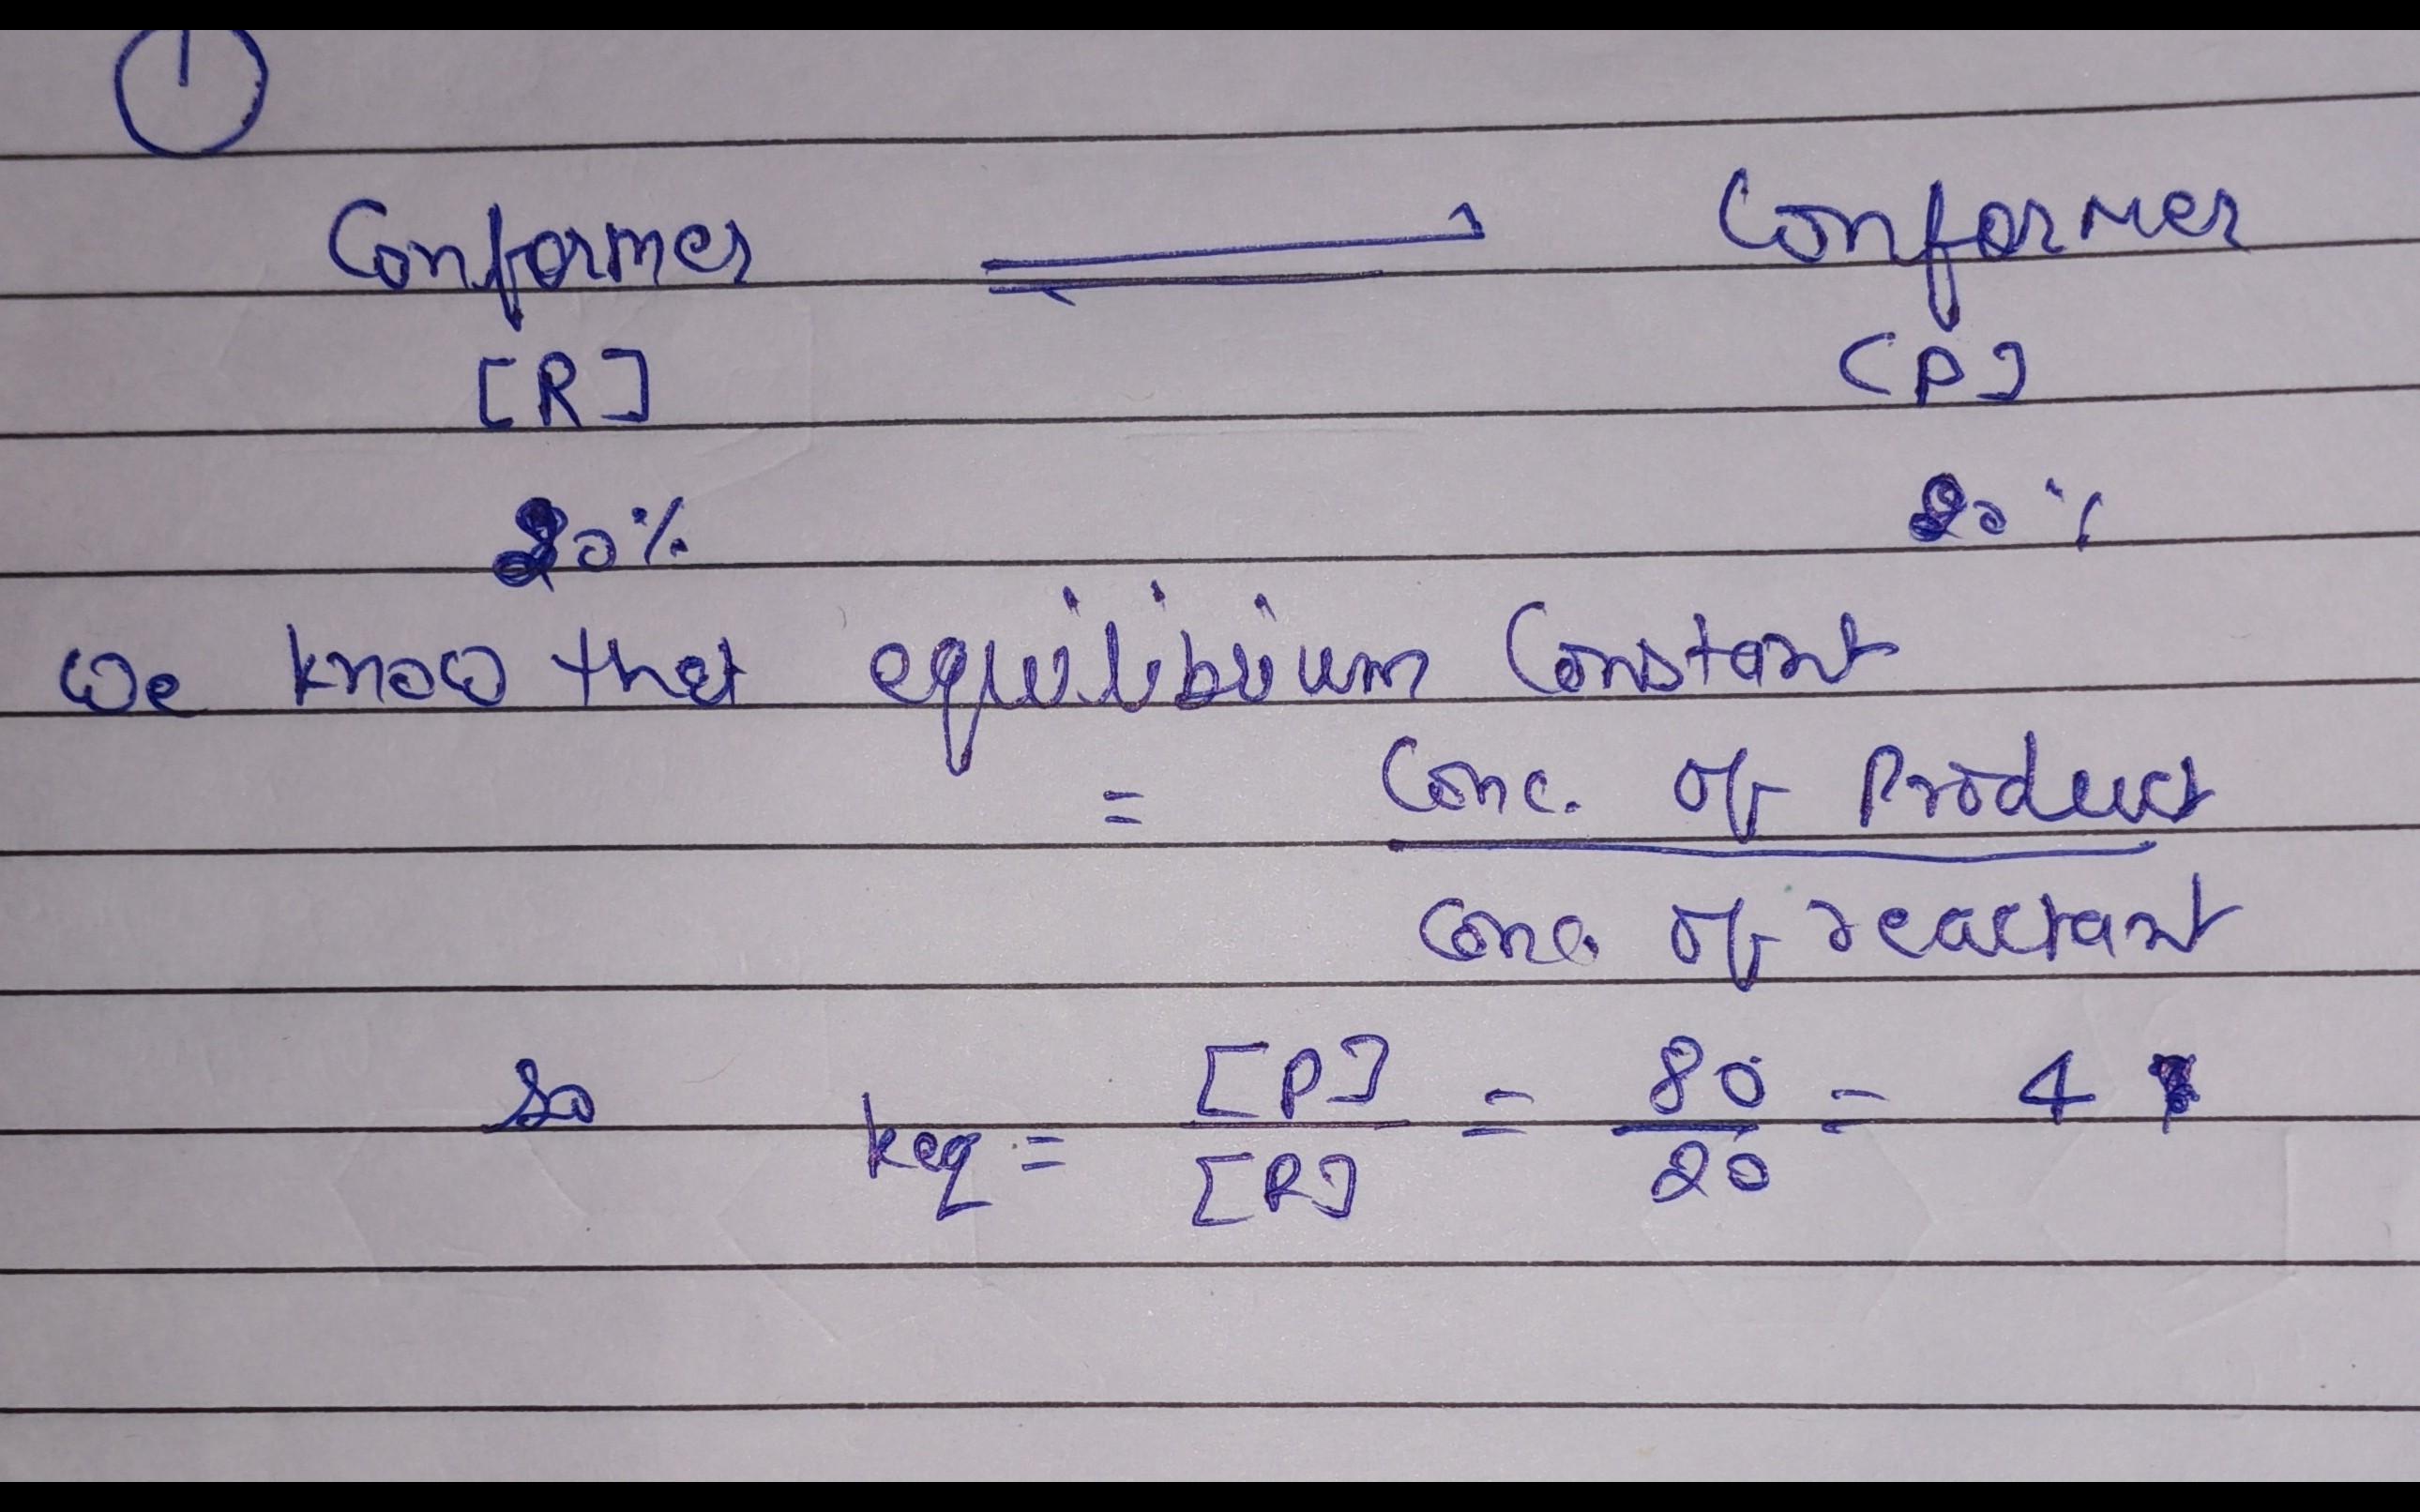 1
Conformer ⇌ Conformer
[R] [P]
20% 20%
We know that equilibrium Constant
= Conc. of Product
Conc. of reactant
So keq = [P] / [R] = 80 / 20 = 4